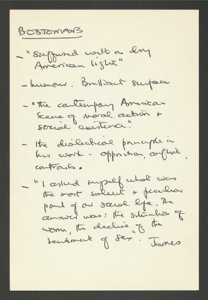 BOSTONIANS
- "suffused with a dry
American light"
- humour. Brilliant surface
- "the contemporary American
scene of moral action &
social existence."
- the dialectical principle in
his work - opposition, conflict,
contrasts.
- "I asked myself what was
the most salient & peculiar
point of our social life. The
answer was: the situation of
women, the decline of the
sentiment of sex. James